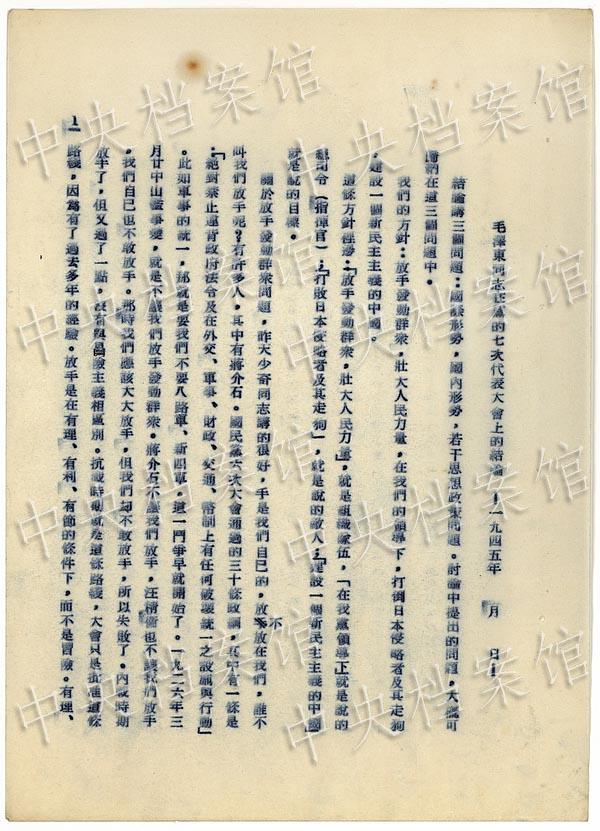 毛澤東同志在黨的七次代表大會上的結論——一九四五年　月　日——
結論講三個問題：國際形勢，國內形勢，若干思想政策問題。討論中提出的問題，大概可
歸納在這三個問題中。
我們的方針：放手發動群衆，壯大人民力量，在我們的領導下，打倒日本侵略者及其走狗
，建設一個新民主主義的中國。
這條方針裡邊：「放手發動群衆，壯大人民力量」，就是組織隊伍，「在我黨領導下」就是說的
總司令（指揮官），「打敗日本侵略者及其走狗」，就是說的敵人，「建設一個新民主主義的中國」
就是說的目標。
關於放手發動群衆問題，昨天少奇同志講的很好，手是我們自己的，放不放在我們，誰不
叫我們放手呢？有許多人，其中有蔣介石。國民黨六次大會通過的三十條政綱，其中有一條是
：「絕對禁止違背政府法令及在外交、軍事、財政、交通、幣制上有任何破壞統一之設施與行動」
。此如軍事的統一，那就是要我們不要八路軍、新四軍。這一鬥爭早就開始了。一九二六年三
月廿中山艦事變，就是不讓我們放手發動群衆。蔣介石不讓我們放手，汪精衛也不讓我們放手
，我們自己也不敢放手。那時我們應該大大放手，但我們却不敢放手，所以失敗了。內戰時期
放手了，但又過了一點，沒有與冒險主義相區別。抗戰時期就是這條路綫，大會只是批准這條
路綫，因為有了過去多年的經驗。放手是在有理、有利、有節的條件下，而不是冒險。有理、
1
中央档案馆
中央档案馆
中央档案馆
中央档案馆
中央档案馆
中央档案馆